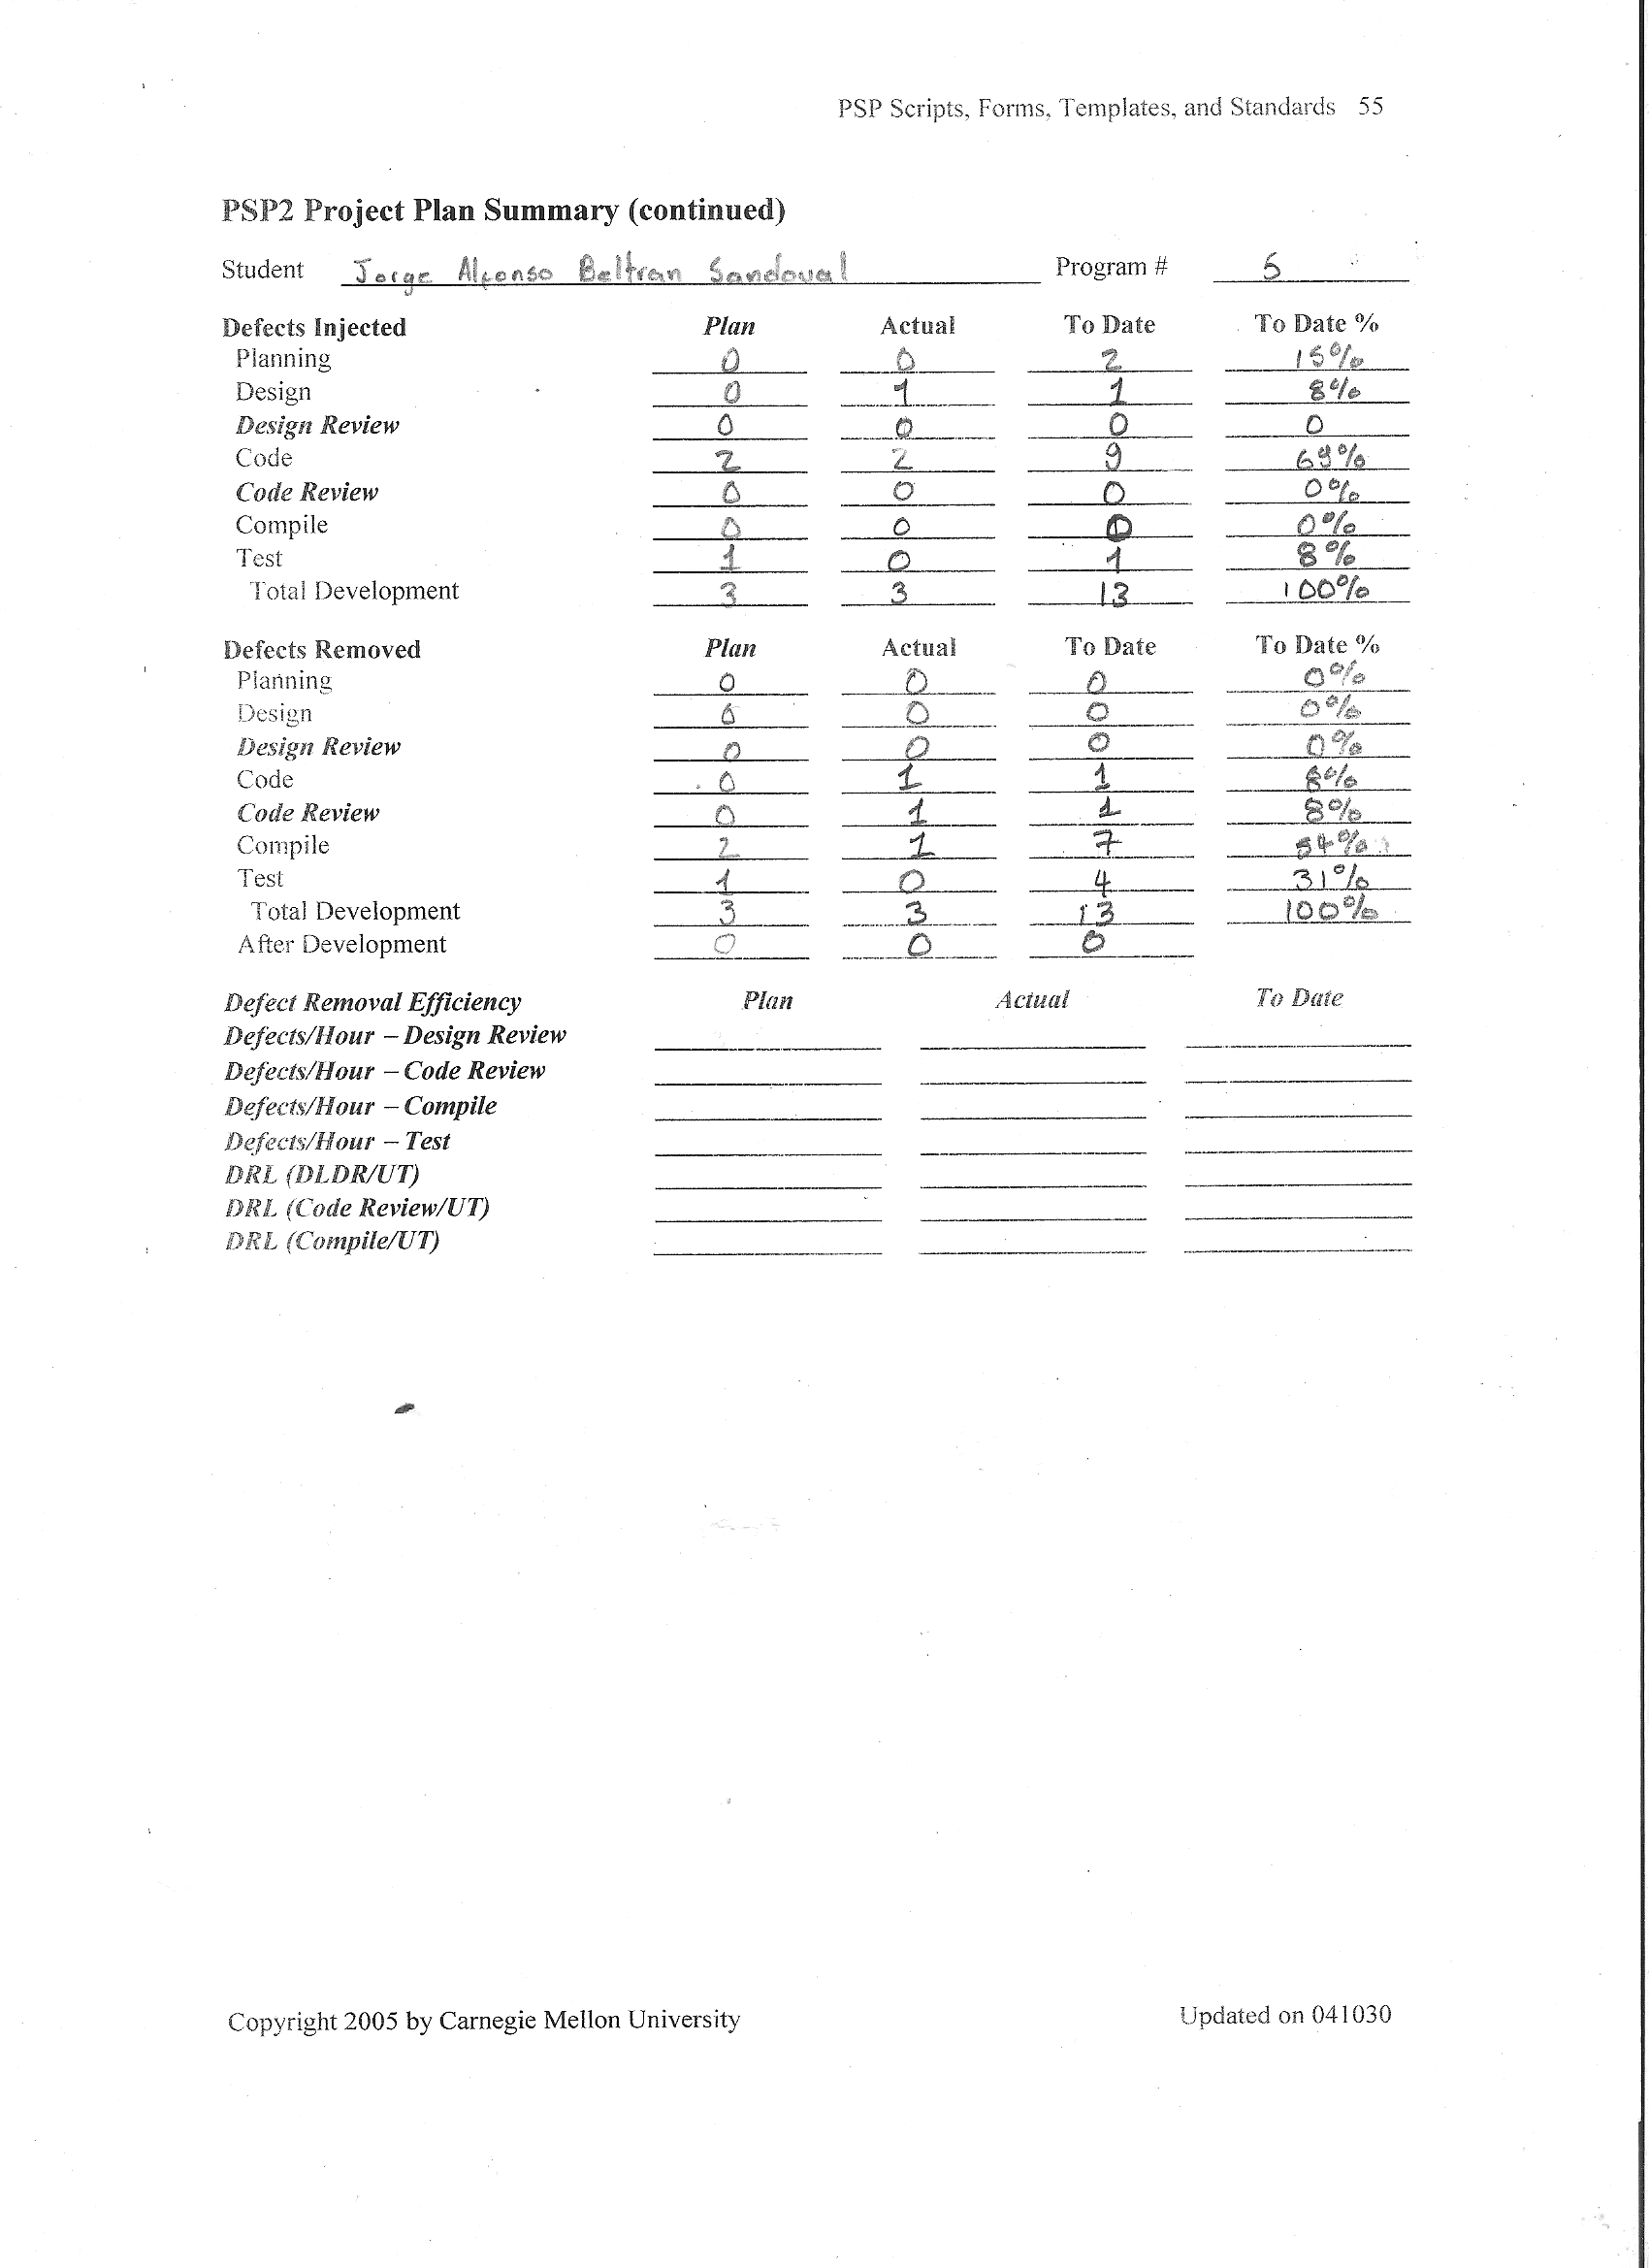 PSP Scripts, Forms, Templates, and Standards 55
PSP2 Project Plan Summary (continued)
Student Jorge Alfonso Beltran Sandoval Program # 5
Defects Injected Plan Actual To Date To Date %
Planning 0 0 2 15%
Design 0 1 1 8%
Design Review 0 0 0 0
Code 2 2 9 69%
Code Review 0 0 0 0%
Compile 0 0 0 0%
Test 1 0 1 8%
Total Development 3 3 13 100%
Defects Removed Plan Actual To Date To Date %
Planning 0 0 0 0%
Design 0 0 0 0%
Design Review 0 0 0 0%
Code 0 1 1 8%
Code Review 0 1 1 8%
Compile 2 1 7 54%
Test 1 0 4 31%
Total Development 3 3 13 100%
After Development 0 0 0
Defect Removal Efficiency Plan Actual To Date
Defects/Hour – Design Review
Defects/Hour – Code Review
Defects/Hour – Compile
Defects/Hour – Test
DRL (DLDR/UT)
DRL (Code Review/UT)
DRL (Compile/UT)
Copyright 2005 by Carnegie Mellon University Updated on 041030